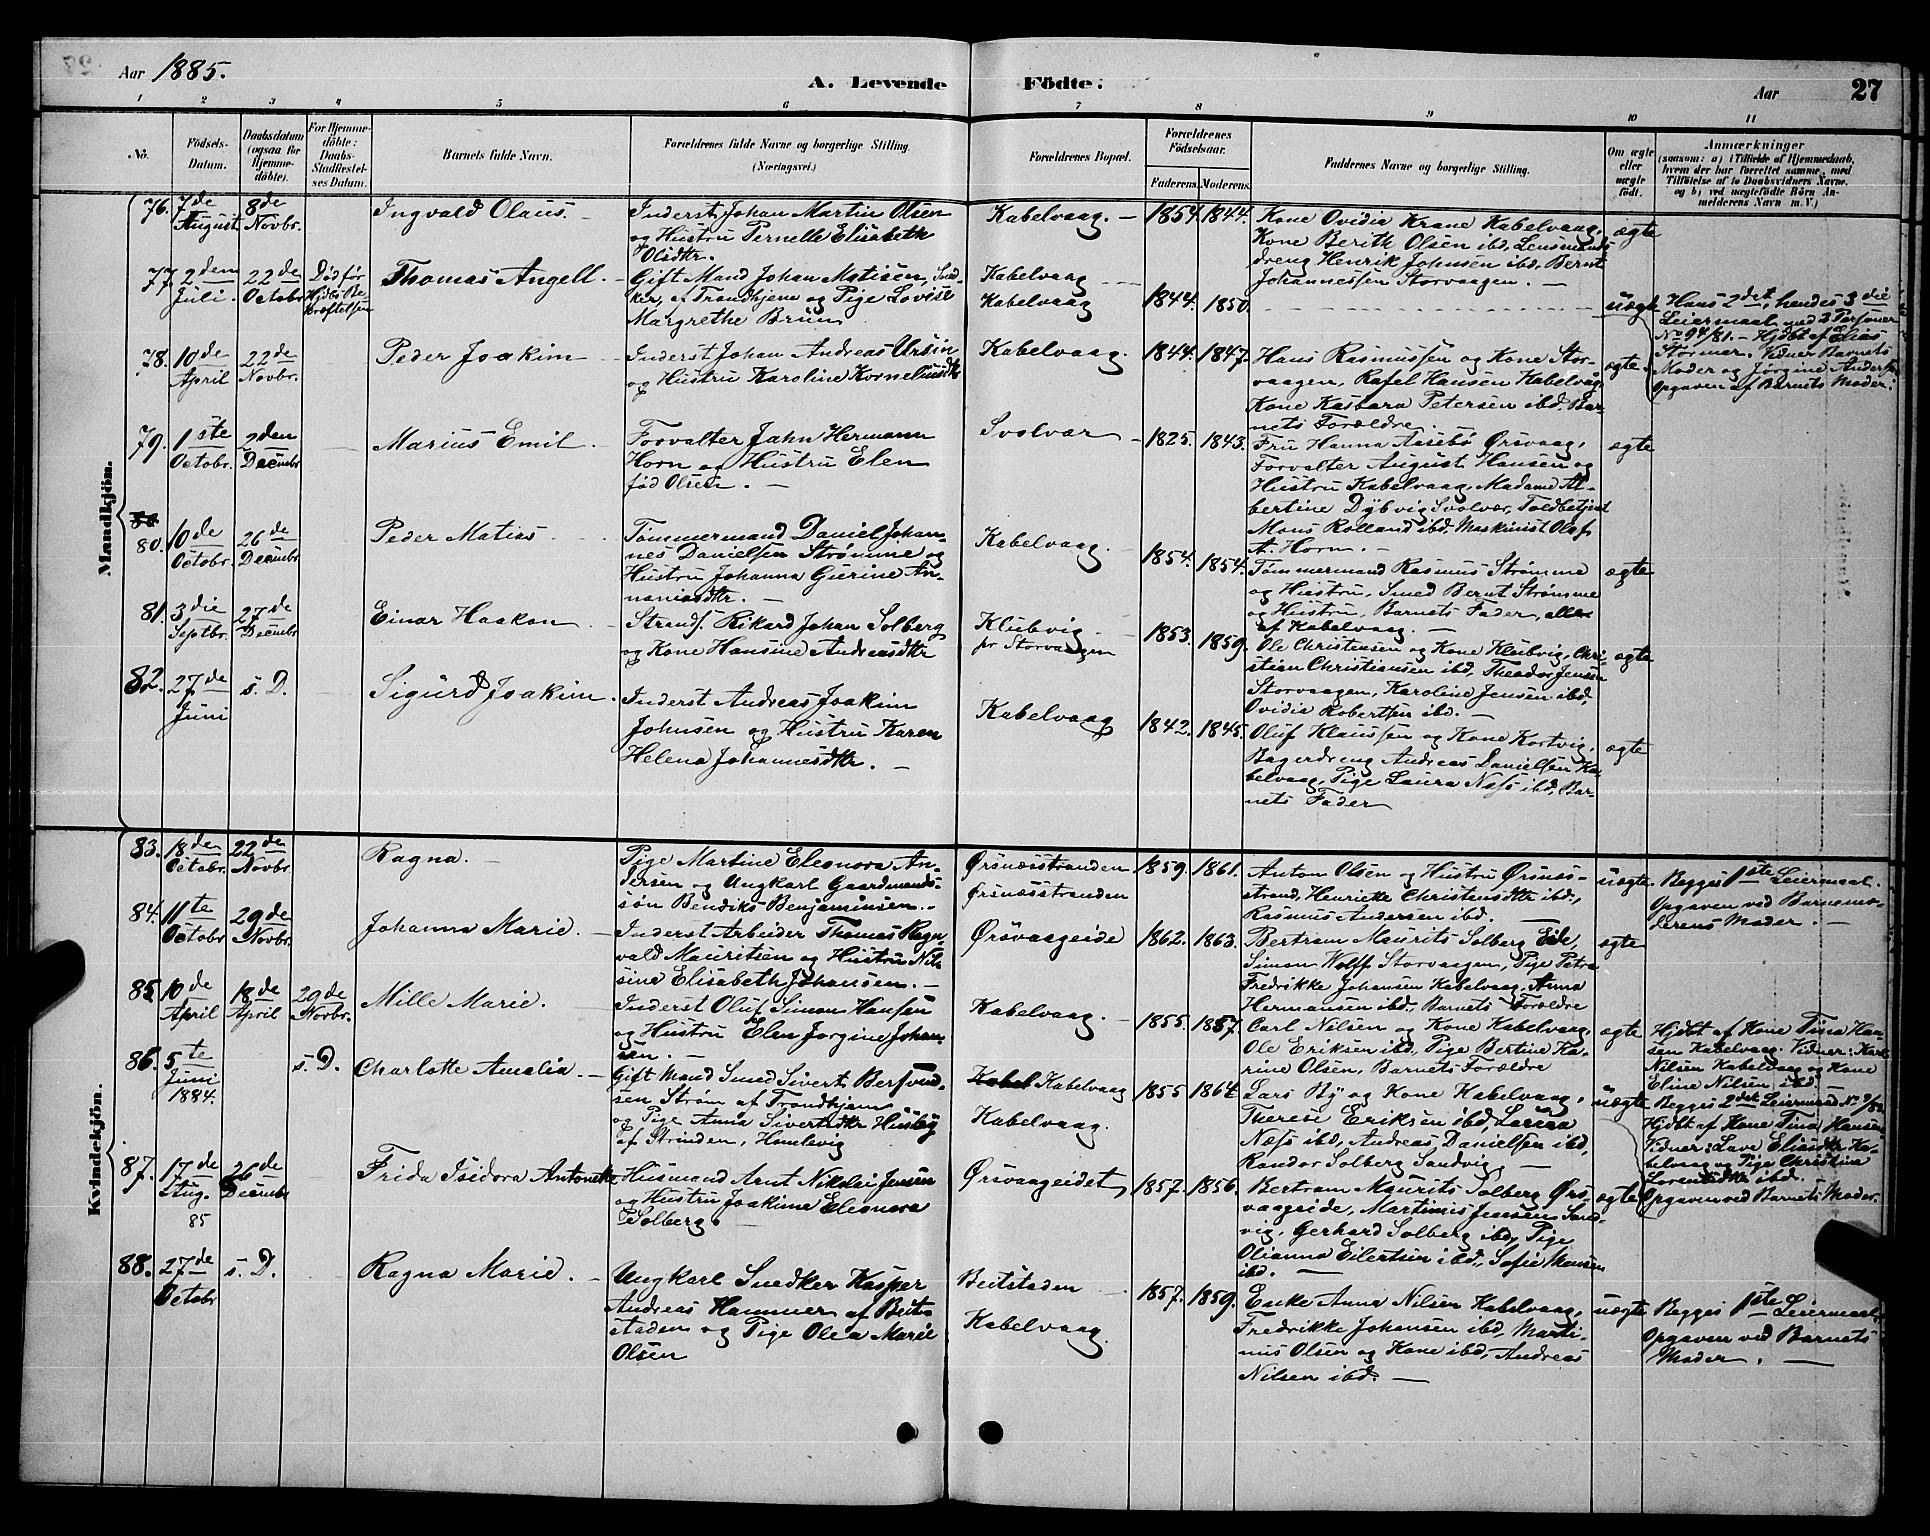 Aar 1885.
A. Levende Födte.
Aar 27
1 2 3 4 5 6 7 8 9 10 11
No.
Födsels-Datum.
Daabsdatum (ogsaa for Hjemmedöbte).
For Hjemmedöbte: Daabs-Stadfæstelses Datum.
Barnets fulde Navn.
Forældrenes fulde Navne og borgerlige Stilling. (Næringsvei.)
Forældrenes Bopæl.
Forældrenes Födselsaar.
Faderens. Moderens.
Faddernes Navne og borgerlige Stilling.
Om ægte eller uægte födt.
Anmærkninger
(saasom: a) i Tilfælde af Hjemmedaab, hvem der har forrettet samme, med Tilföielse af to Daabsvidners Navne, og b) ved uægtefödte Börn Anmelderens Navn m. V.)
Mandkjön.
76. 7de August 8de Novbr. Ingvald Olaus. –
Inderst Johan Martin Olsen
og Hustru Pernelle Elisabeth
Olsdtr.
Kabelvaag. – 1854. 1844.
Kone Ovidia Krane Kabelvaag,
Kone Berith Olsen ibd, Lensmands
dreng Henrik Johnsen ibd, Bernt
Johannessen Storvaagen. –
ægte
77. 2den Juli 22de Octobr. Död før Hjdbs Bekræftelsen Thomas Angell. –
Gift Mand Johan Matisen, Snedker, af Trondhjem og Pige Lovise
Margrethe Brun
Kabelvaag
Kabelvaag
1844. 1850.
uægte
Hans 2det, hendes 3die
Leiermaal med 2 Personer
No 94/81. – Hjdbt af Elias
Störmer. Vidner Barnets
Moder og Jørgine Andersen
Opgaven af Barnets Moder.
78. 10de April 22de Novbr. Peder Joakim
Inderst Johan Andreas Ursin
og Hustru Karoline Korneliusdtr
Kabelvaag. 1844. 1847.
Hans Rasmussen og Kone Storvaagen, Rafel Hansen Kabelvaag,
Kone Kasbara Petersen ibd, Barnets Forældre. –
ægte.
79. 1ste Octobr. 2den Decembr Marius Emil.
Forvalter Jahn Hermann
Horn og Hustru Elen
fød Olsen. –
Svolvær – 1825. 1843.
Fru Hanna Aasebø Ørsvaag,
Forvalter August Hansen og
Hustru Kabelvaag, Madame Albertine Dybvig Svolvær, Toldbetjent
Mons Rolland ibd, Maskinist Olaf
A. Horn. –
ægte
80. 10de Octobr. 26de Decembr Peder Matias
Tømmermand Daniel Johannes Danielsen Strømme og
Hustru Johanna Gurine Ananiasdtr. –
Kabelvaag. 1854. 1854.
Tømmermand Rasmus Strømme
og Hustru, Smed Bernt Strømme
og Hustru, Barnets Fader, alle
af Kabelvaag. –
ægte
81. 3die Septbr. 27de Decembr Einar Haakon
Strands. Rikard Johan Solberg
og Kone Hansine Andreasdtr
Klubvig
pr Storvaagen
1853. 1859.
Ole Christensen og Kone Klubvig, Christian Christiansen ibd, Theodor Jensen
Storvaagen, Karoline Jensen ibd,
Ovidia Robertsen ibd. –
ægte
82. 27de Juni s. D. Sigurd Joakim.
Inderst Andreas Joakim
Johnsen og Hustru Karen
Helena Johannesdtr. –
Kabelvaag 1842. 1845.
Oluf Klaussen og Kone Kortvig,
Bagerdreng Andreas Danielsen Kabelvaag, Pige Laura Næss ibd, Barnets Fader
ægte
Kvindekjön.
83. 18de Octobr 22de Novbr. Ragna. –
Pige Martine Eleonora Andersen og Ungkarl Gaardmandssøn Bendiks Benjaminsen. –
Ørsnæsstranden
Ørsnæsstranden
1859. 1861.
Anton Olsen og Hustru Ørsnæsstrand, Henriette Christensdtr ibd.,
Rasmus Andersen ibd.
uægte
Begges 1ste Leiermaal.
Opgaven ved Barnemoderens Moder. –
84. 11te Octobr 29de Novbr. Johanna Marie. –
Inderst Arbeider Thomas Ragnvald Mauritsen og Hustru Nilsine Elisabeth Johansen. –
Ørsvaageide 1862. 1863.
Bertram Maurits Solberg Eide,
Simon Wolff Storvaagen, Pige Petra
Fredrikke Johansen Kabelvaag, Anna
Hermansen ibd., Barnets Forældre
ægte
85. 10de April 18de April 29de Novbr. Mille Marie. –
Inderst Oluf Simon Hansen
og Hustru Elen Jørgine Johansen. –
Kabelvaag. – 1855. 1857.
Carl Nilsen og Kone Kabelvaag,
Ole Eriksen ibd, Pige Bertine Karine Olsen, Barnets Forældre
ægte
Hjdbt af Kone Tina Hansen Kabelvaag. Vidner: Karl
Nilsen Kabelvaag og Kone
Eline Nilsen ibd. –
86. 5te Juni 1884. s. D. Charlotte Amalia. –
Gift Mand Smed Sivert Bersvendsen Strøm af Trondhjem
og Pige Anna Sivertsdtr Husby
af Strinden, Homlevig
Kabelvaag
Kabelvaag.
1855 1864
Lars By og Kone Kabelvaag,
Therese Eriksen ibd, Laura
Næss ibd, Andreas Danielsen ibd,
Randor Solberg Sandvig. –
uægte
Begges 2det Leiermaal
Hjdbt af Kone Tina Hansen
Vidner: Lave Eliasdtr Kabelvaag og Pige Christine
Lorentsdtr ibd.
Opgaven ved Barnets Moder.
87. 17de Aug. 85 26de Decembr Frida Isidora Antonette
Husmand Arnt Nikolai Jensen
og Hustru Joakime Eleonora
Solberg. –
Ørsvaageidet 1857. 1856.
Bertram Maurits Solberg Ørsvaageide, Martinus Jensen Sandvig, Gerhard Solberg ibd, Pige
Olianna Eilertsen ibd., Sofie Monsen
ibd. –
ægte
88. 27de Octobr s. D. Ragna Marie. –
Ungkarl Snedker Kasper
Andreas Hammer af Beitstaden og Pige Olea Marie
Olsen
Beitstaden
Kabelvaag.
1857. 1859.
Enke Anna Nilsen Kabelvaag,
Fredrikke Johansen ibd, Martinus Olsen og Kone ibd, Andreas
Nilsen ibd. –
uægte
Begges 1ste Leiermaal,
Opgaven ved Barnets
Moder. –